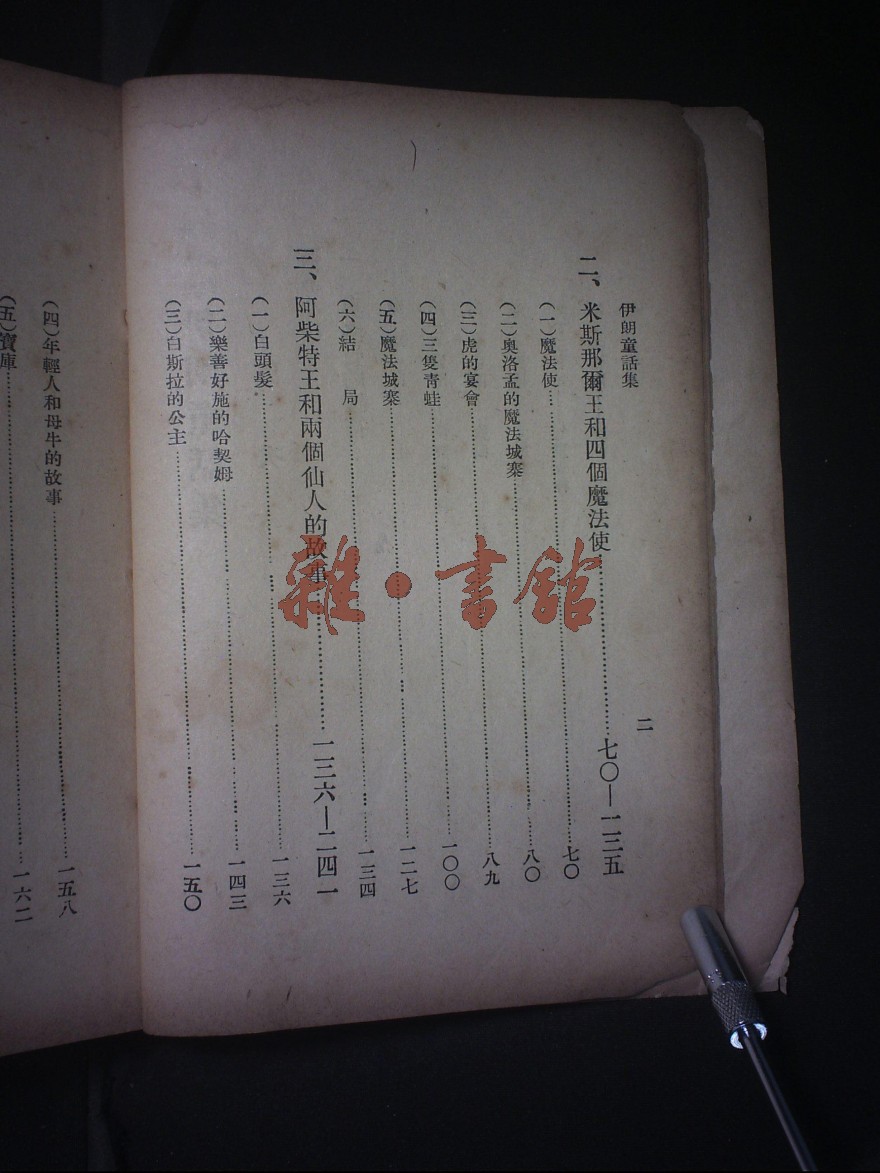 伊朗童話集
二
二、米斯那爾王和四個魔法使⋯⋯七〇—一三五
(一)魔法使⋯⋯七〇
(二)奧洛孟的魔法城寨⋯⋯八〇
(三)虎的宴會⋯⋯八九
(四)三隻靑蛙⋯⋯一〇〇
(五)魔法城寨⋯⋯一二七
(六)結　局⋯⋯一三四
三、阿柴特王和兩個仙人的故事⋯⋯一三六—二四一
(一)白頭髮⋯⋯一三六
(二)樂善好施的哈契姆⋯⋯一四三
(三)白斯拉的公主⋯⋯一五〇
(四)年輕人和母牛的故事⋯⋯一五八
(五)寶庫⋯⋯一六二
雜·書館